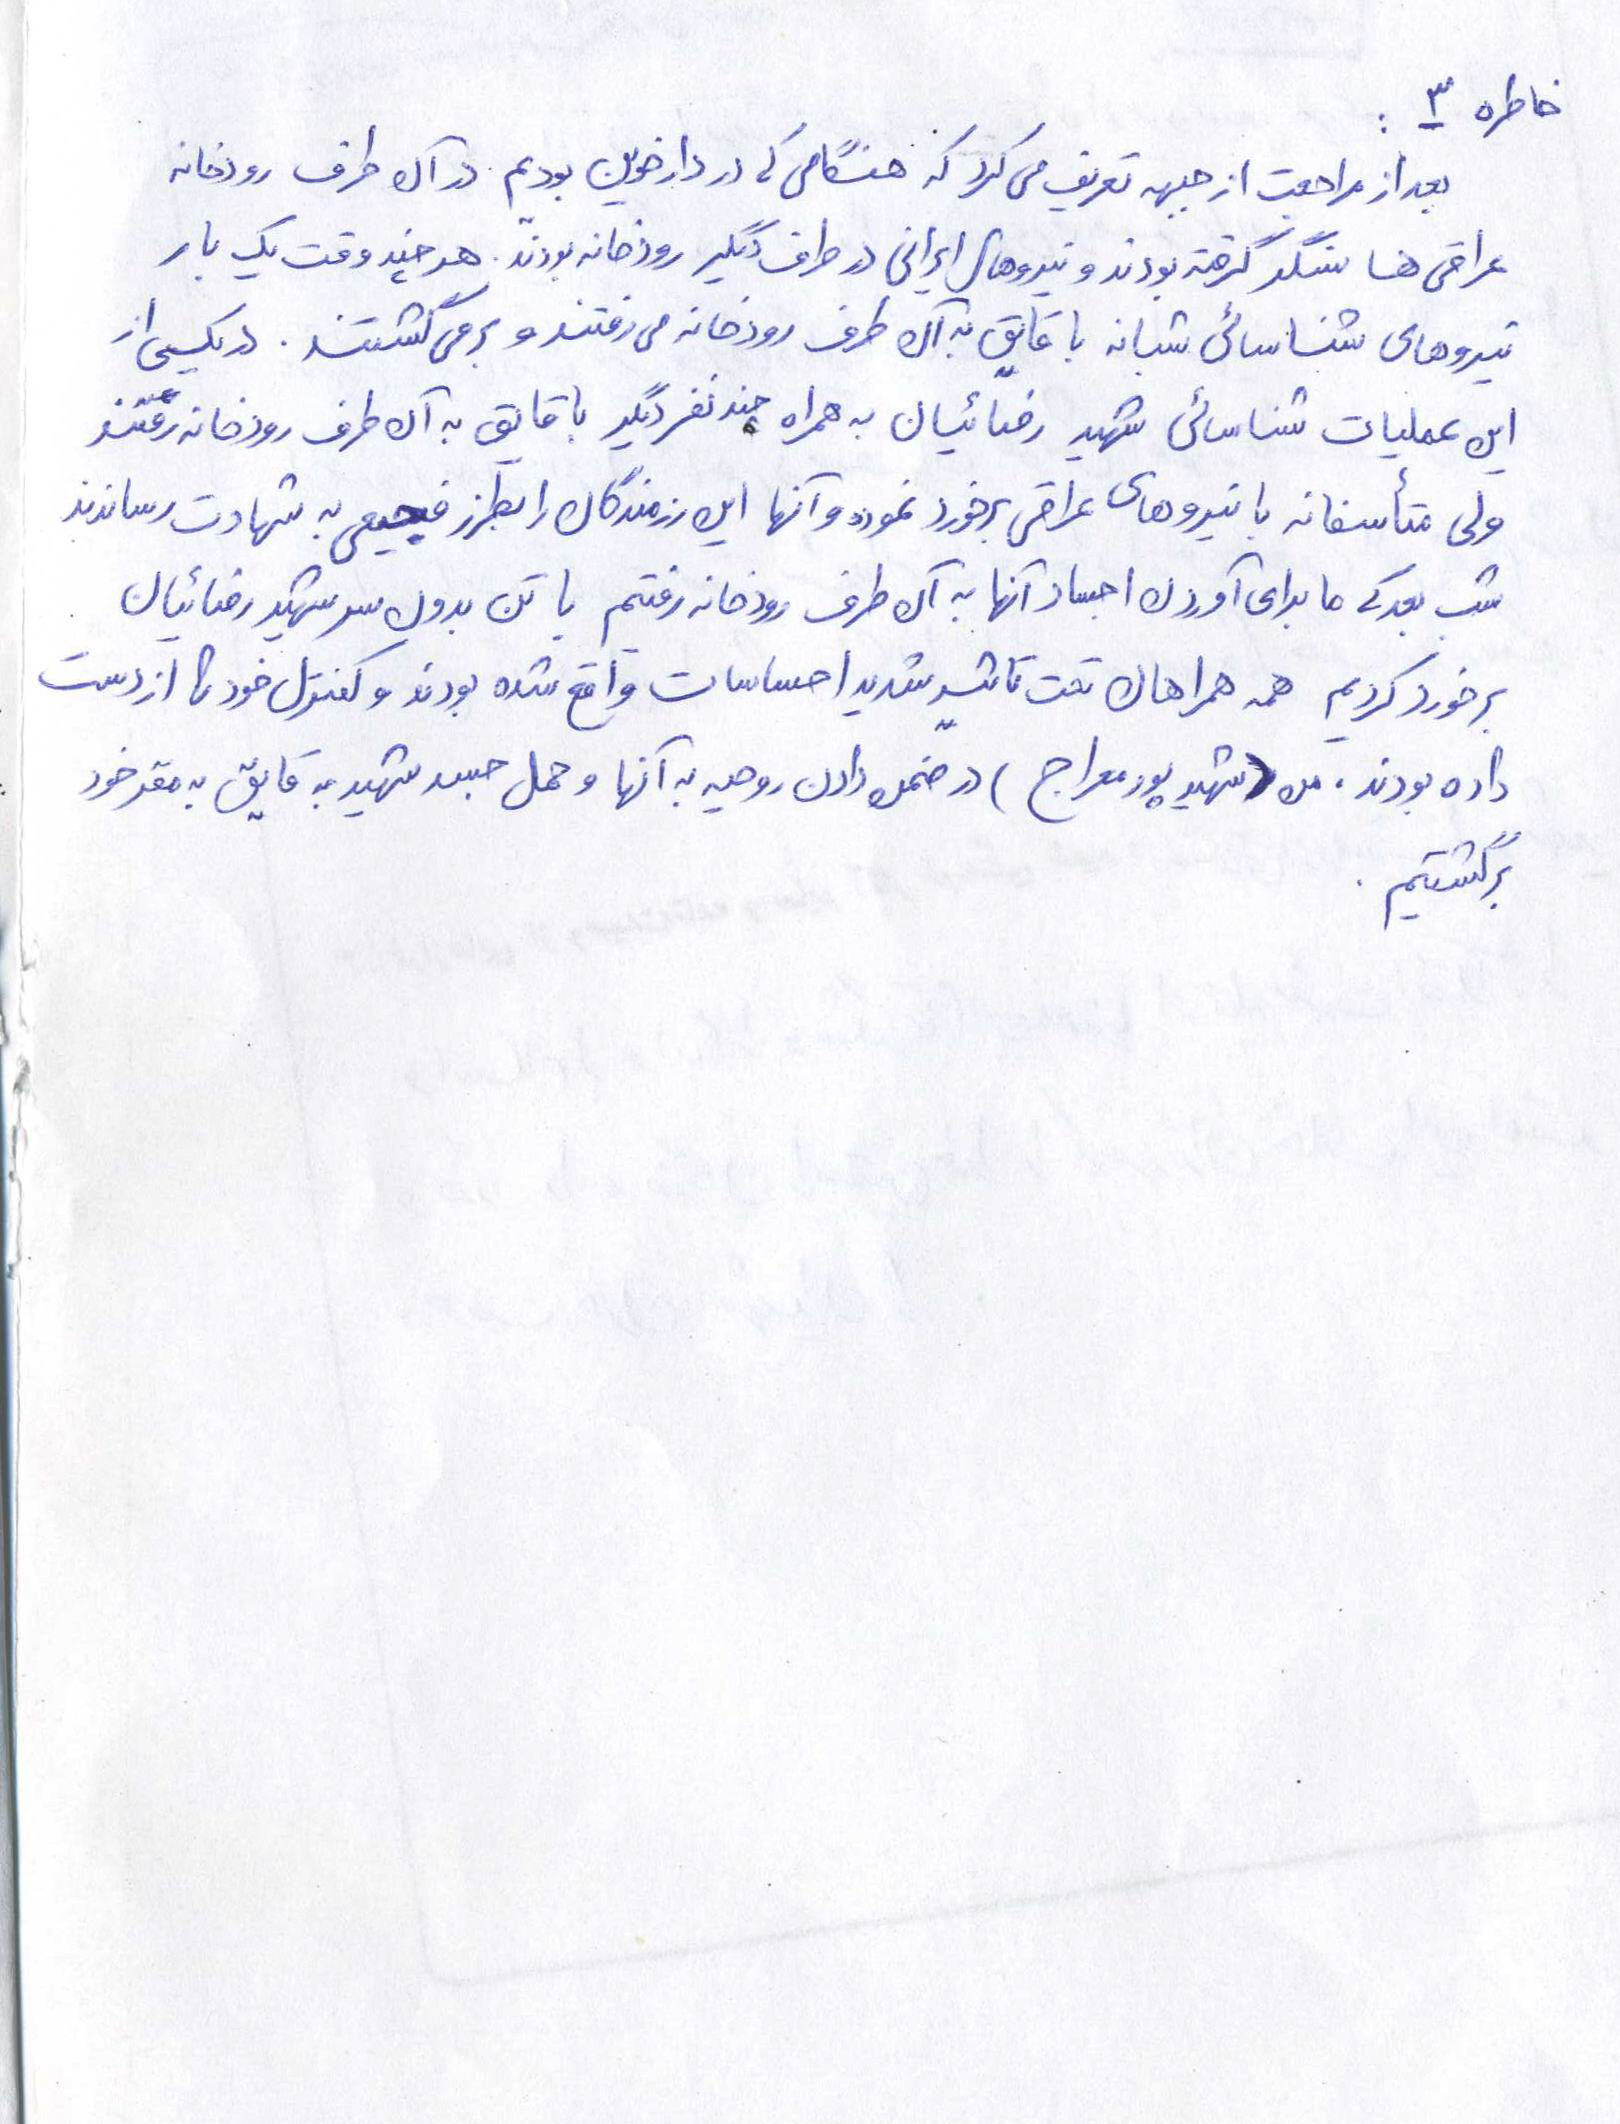 خاطره ۳ :
بعد از مراجعت از جبهه تعریف می کرد که هنگامی که در دارخوین بودیم . در آن طرف رودخانه
عراقی ها سنگر گرفته بودند و نیروهای ایرانی در طرف دیگر رودخانه بودند . هر چند وقت یک بار
نیروهای شناسائی شبانه با قایق به آن طرف رودخانه می رفتند و برمی گشتند . در یکی از
این عملیات شناسائی شهید رضائیان به همراه چند نفر دیگر با قایق به آن طرف رودخانه رفتند
ولی متأسفانه با نیروهای عراقی برخورد نموده و آنها این رزمندگان را بطرز فجیعی به شهادت رساندند
شب بعد که ما برای آوردن اجساد آنها به آن طرف رودخانه رفتیم با تن بدون سر شهید رضائیان
برخورد کردیم همه همراهان تحت تاثیر شدید احساسات واقع شده بودند و کنترل خود را از دست
داده بودند ، من (شهید پورمعراج) در ضمن دادن روحیه به آنها و حمل جسد شهید به قایق به مقر خود
برگشتیم .